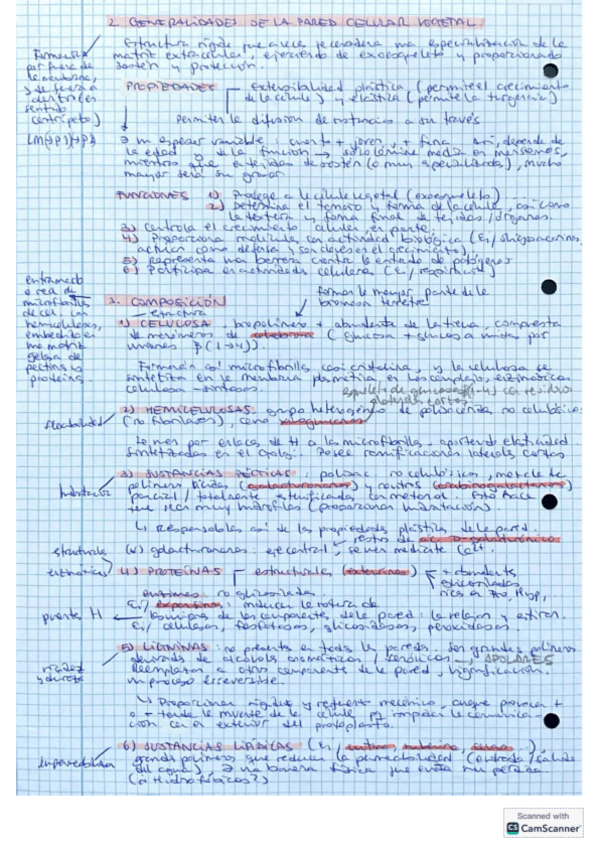 2. GENERALIDADES DE LA PARED CELULAR VEGETAL
Estructura rígida que a veces se considera una especialización de la
matriz extracelular, ejerciendo de exoesqueleto y proporcionando
sostén y protección.
Formación
por fuera de
la neutrina,
y de fuera a
dentro (en
sentido
centrípeto)
LM → P1 → P2
PROPIEDADES
Extensibilidad plástica (permite el crecimiento
de la célula) y elástica (permite la turgencia)
Permite la difusión de sustancias a su través
espesor variable, cuanto + joven, + fina así, depende de
la edad y de la función → sólo lámina media en meristemos,
mientras que en tejidos de sostén (o muy especializados), mucho
mayor será su grosor.
FUNCIONES 1) Protege a la célula vegetal (exoesqueleto)
2) Determina el tamaño y forma de la célula, así como
la textura y forma final de tejidos/órganos.
3) Controla el crecimiento celular, en parte.
4) Proporciona moléculas con actividad biológica (Ej/ oligosacarinas,
actúan como defensa y son claves en el crecimiento)
5) Representa una barrera contra la entrada de patógenos
6) Participa en actividades celulares (Ej/ respiración)
entramado
o red de
microfibrillas
de cel. con
hemicelulosas,
embebido en
una matriz
gelosa de
pectinas y
proteínas.
3. COMPOSICIÓN
forman la mayor parte de la
biomasa terrestre
estructura
1) CELULOSA, biopolímero + abundante de la tierra, compuesta
de monómeros de (glucosa + glucosa unidas por
uniones β(1→4)).
Formación así microfibrillas, casi cristalina, y la celulosa se
sintetiza en la membrana plasmática, en los complejos enzimáticos
celulosa-sintasas.
flexibilidad
2) HEMICELULOSAS: grupo heterogéneo de polisacáridos no celulósicos
(no fibrilares), como
Se unen por enlaces de H a las microfibrillas, aportando elasticidad.
Sintetizadas en el Golgi. Posee ramificaciones laterales cortas
hidratación
3) SUSTANCIAS PÉCTICAS: polisac. no celulósicos, mezcla de
polímeros ácidos (galacturonanos) y neutros (arabinogalactanos)
parcial / totalmente esterificadas con metanol. Esto hace
que sean muy hidrófilas (proporcionan hidratación).
↳ Responsables así de las propiedades plásticas de la pared.
restos de ác. D-galacturónico
galacturonanos: eje central, se unen mediante Ca²⁺.
estructurales
enzimáticas
4) PROTEÍNAS
estructurales (extensinas)
+ abundantes
glicosiladas
ricas en Pro, Hyp,
enzimas: no glicosiladas
puentes H
Ej/ expansinas: inducen la rotura de
los uniones de los componentes de la pared: la relajan y estiran.
Ej/ celulasas, fosfatasas, glicosidasas, peroxidasas
rigidez
y dureza
5) LIGNINAS: no presente en todas las paredes. Son grandes polímeros
derivados de alcoholes aromáticos / fenólicos → APOLARES
Reemplazan a otros componentes de la pared, lignificación.
Un proceso irreversible.
↳ Proporcionan rigidez y refuerzo mecánico, aunque provoca +
o - tarde la muerte de la célula pq impiden la comunica-
ción con el exterior del protoplasto.
impermeabilidad
6) SUSTANCIAS LIPÍDICAS (Ej/ cutina, suberina, ceras...)
grandes polímeros que reducen la permeabilidad (entrada/salida
del agua), una barrera física que evita su pérdida.
(¿Hidrofóbicos?)
Scanned with
CS CamScanner